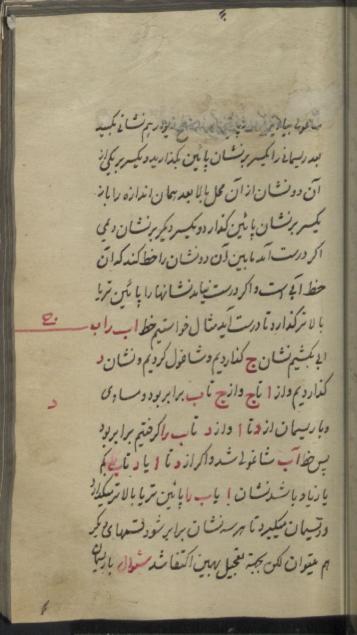 شاغولی بیاویزد نشانی بکشید
بعد ریسمانی را یکسر بر نشان پائین بگذارید و یکسر بر یکی از
آن دو نشان از آن محل بالا بعد همان اندازه را باز
یکسر بر نشان پائین گذارد و یکسر دیگر بر نشان دیمی
اگر درست آید مابین آن دو نشان را خط کند که آن
خط آبی است و اگر درست نیاید نشانها را پائین تر یا
بالاتر گذارد تا درست آید مثال خواستیم خط اب را ب
ابی بکشیم نشان ج گذاردیم و شاغول کردیم و نشان د
گذاردیم و از ا تا ج و از ج تا ب برابر بود و مساوی
د
و با ریسمان از د تا ا و از د تا ب را گرفتیم برابر بود
پس خط آب شاغولی شد و اگر از د تا ا یا د تا ب کم
یا زیاد باشد نشان ا یا ب را پائین تر یا بالاتر میگذارد
و ریسمان میگیرد تا هر سه نشان برابر شود و قسمهای دیگر
هم میتوان لکن بجهة تعجیل بهمین اکتفا شد سئوال با ریسمان